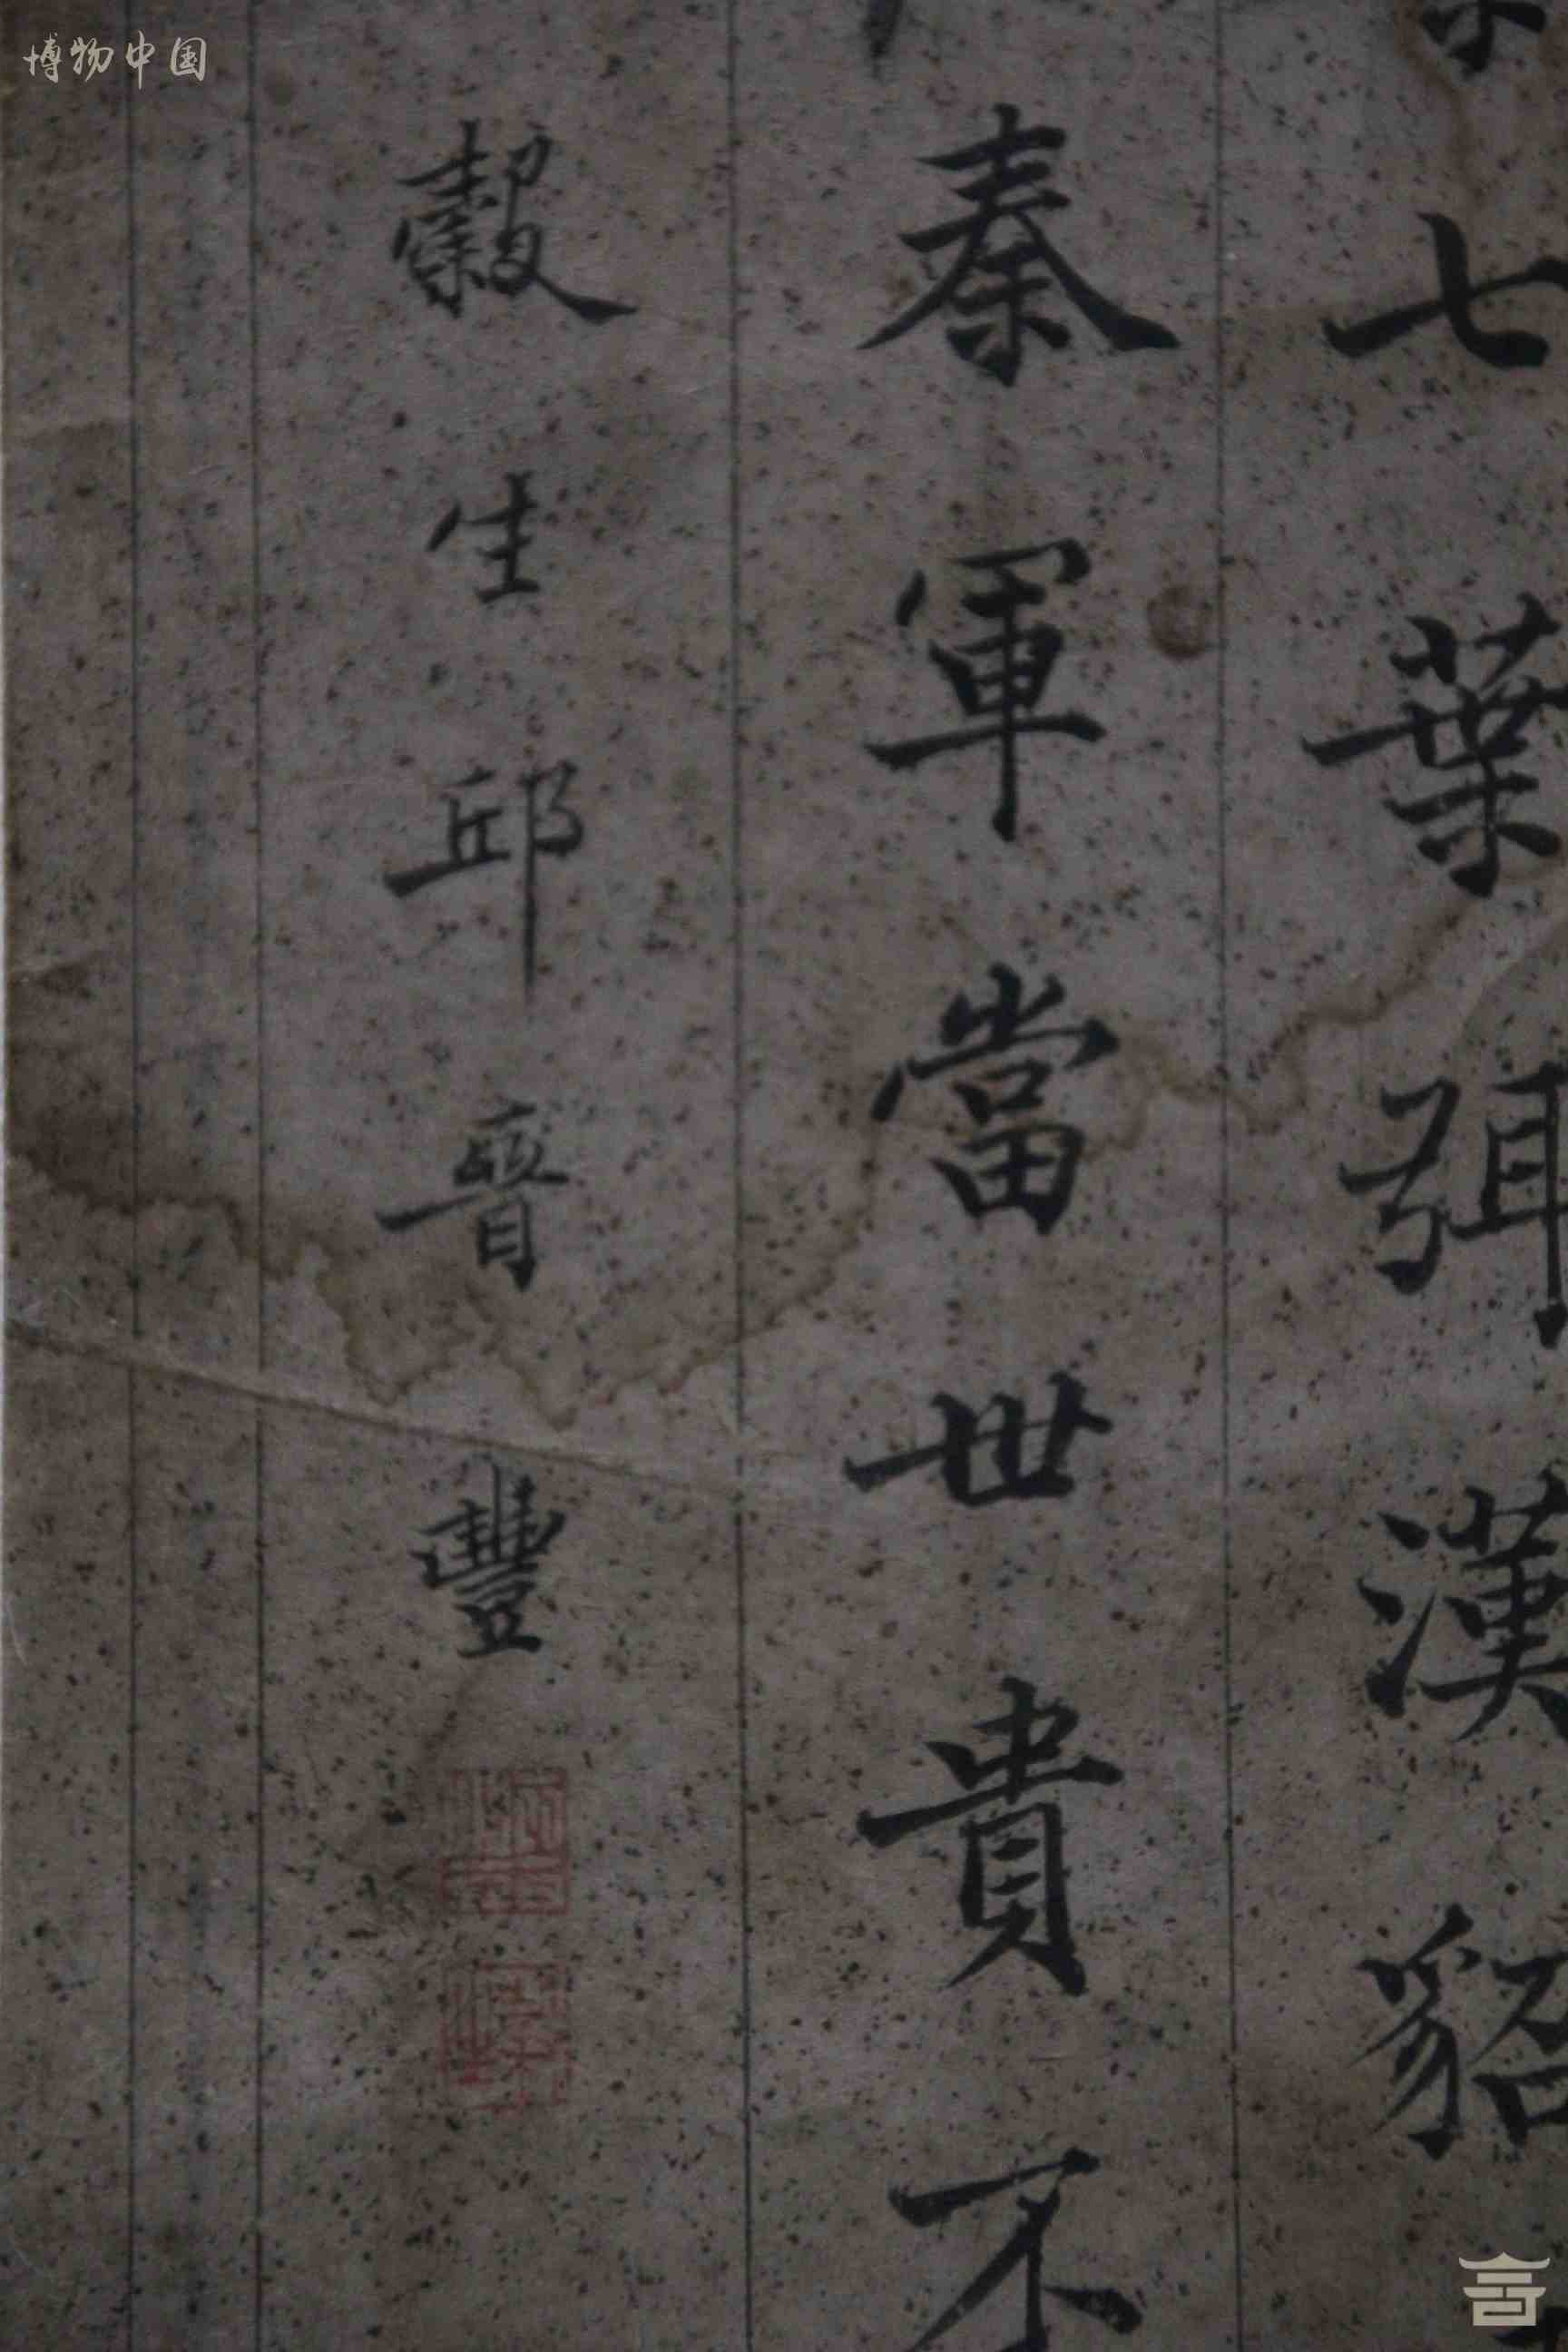 博物中国
七葉弭漢貂
秦軍當世貴不
穀生邱晉豐